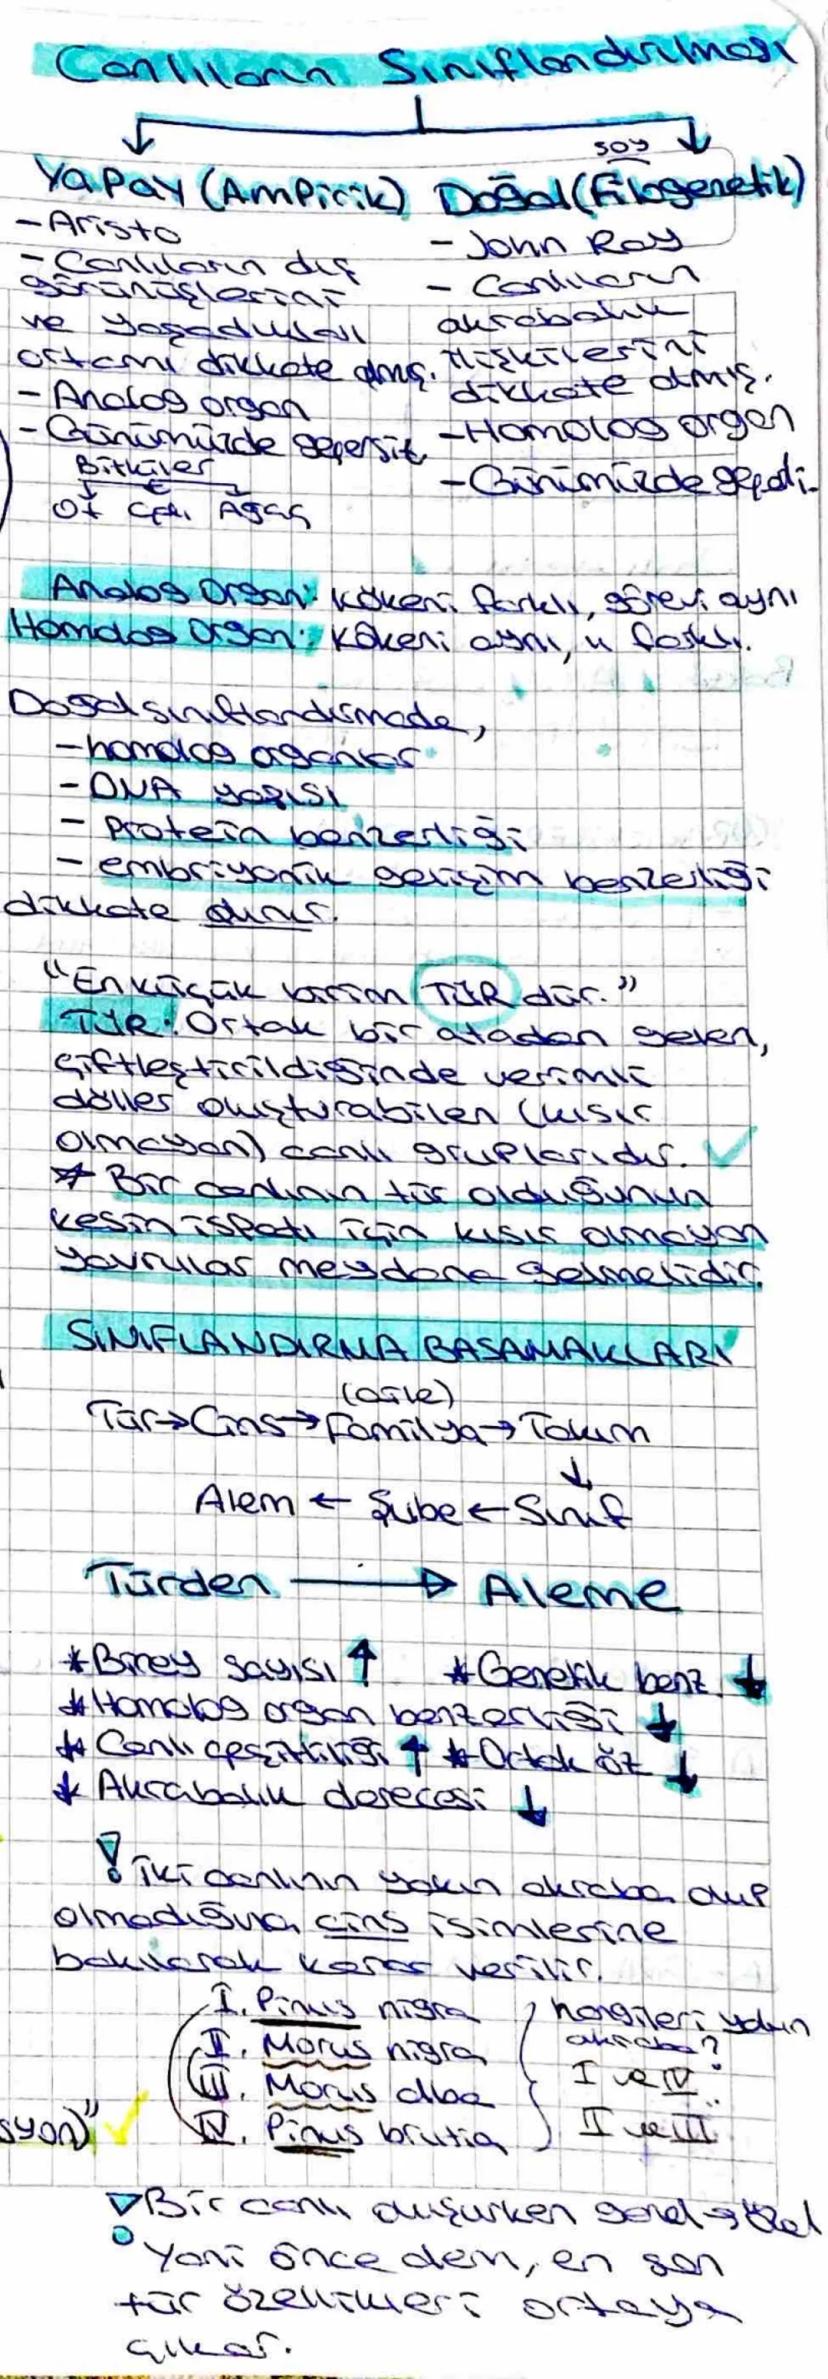 Canlıların Sınıflandırılması
soy
Yapay (Ampirik) Doğal (Filogenetik)
- Aristo
- Canlıların dış
görünüşlerini
ve yaşadıkları
ortamı dikkate almış.
- Analog organ
- Günümüzde geçersiz
Bitkiler
Ot Çalı Ağaç
- John Ray
- Canlıların
akrabalık
ilişkilerini
dikkate almış.
- Homolog organ
- Günümüzde geçerli
Analog Organ: Kökeni farklı, görevi aynı
Homolog Organ: Kökeni aynı, " farklı.
Doğal sınıflandırmada,
- homolog organlar
- DNA yapısı
- protein benzerliği
- embriyonik gelişim benzerliği
dikkate alınır.
"En küçük birim TÜR dür."
TÜR: Ortak bir atadan gelen,
çiftleştirildiğinde verimli
döller oluşturabilen (kısır
olmayan) canlı gruplarıdır. ✓
* Bir canlının tür olduğunun
kesin ispatı için kısır olmayan
yavrular meydana gelmelidir.
SINIFLANDIRMA BASAMAKLARI
(aile)
Tür → Cins → Familya → Takım
↓
Alem ← Şube ← Sınıf
Türden → Aleme
* Birey sayısı ↑ * Genetik benz. ↓
* Homolog organ benzerliği ↓
* Canlı çeşitliliği ↑ * Ortak öz ↓
* Akrabalık derecesi ↓
! İki canlının yakın akraba olup
olmadığına cins isimlerine
bakılarak karar verilir.
I. Pinus nigra
II. Morus nigra
III. Morus alba
IV. Pinus brutia
hangileri yakın
akraba?
I ve IV
II ve III
syon)" ✓
! Bir canlı oluşurken genel → özel
Yani önce alem, en son
tür özellikleri ortaya
çıkar.